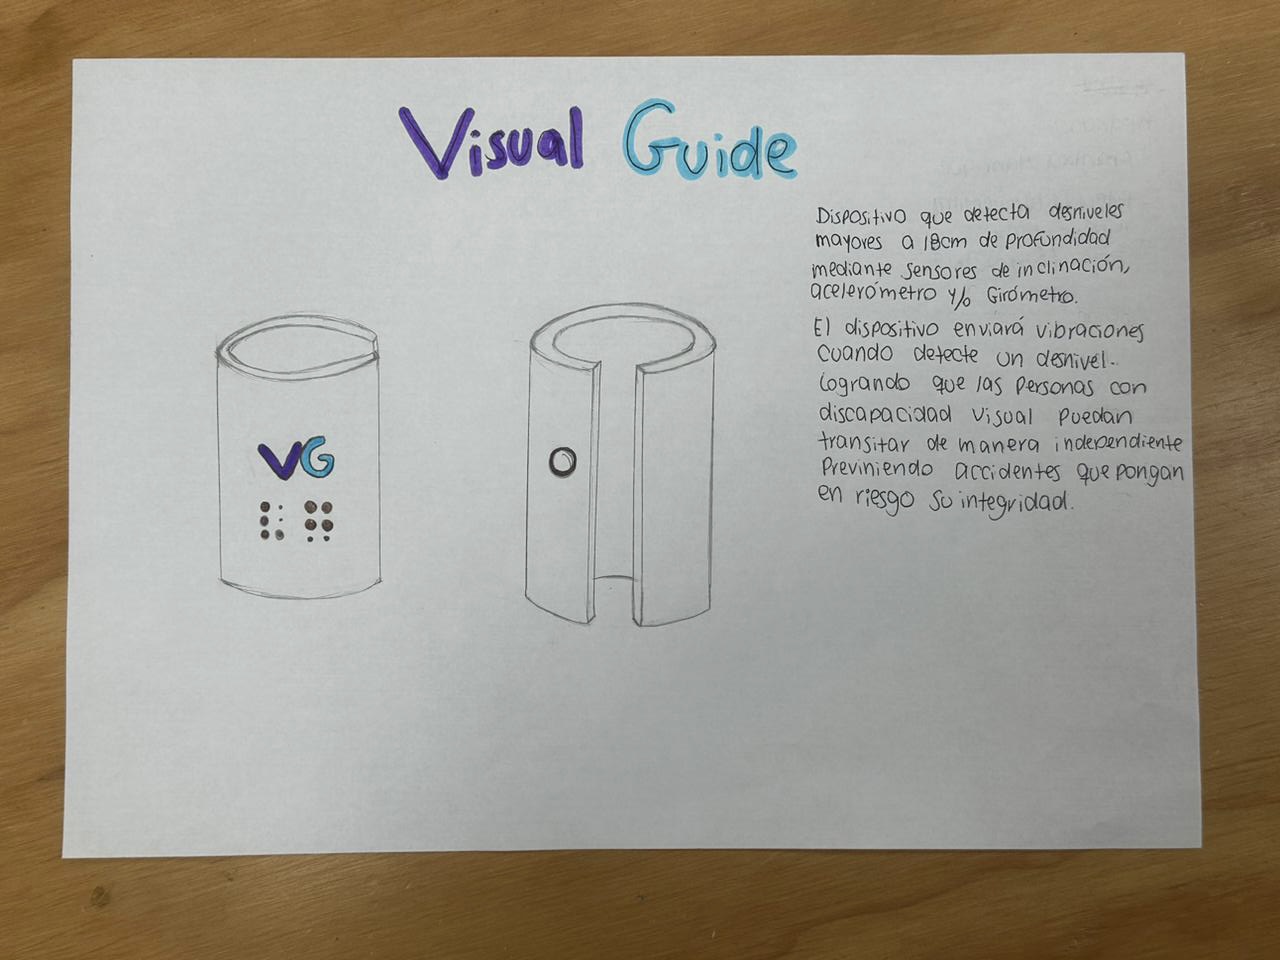 Visual Guide
Dispositivo que detecta desniveles
mayores a 18cm de profundidad
mediante sensores de inclinación,
acelerómetro y/o Girómetro.
El dispositivo enviará vibraciones
cuando detecte un desnivel.
logrando que las personas con
discapacidad visual puedan
transitar de manera independiente
Previniendo accidentes que pongan
en riesgo su integridad.
VG
⠧⠛